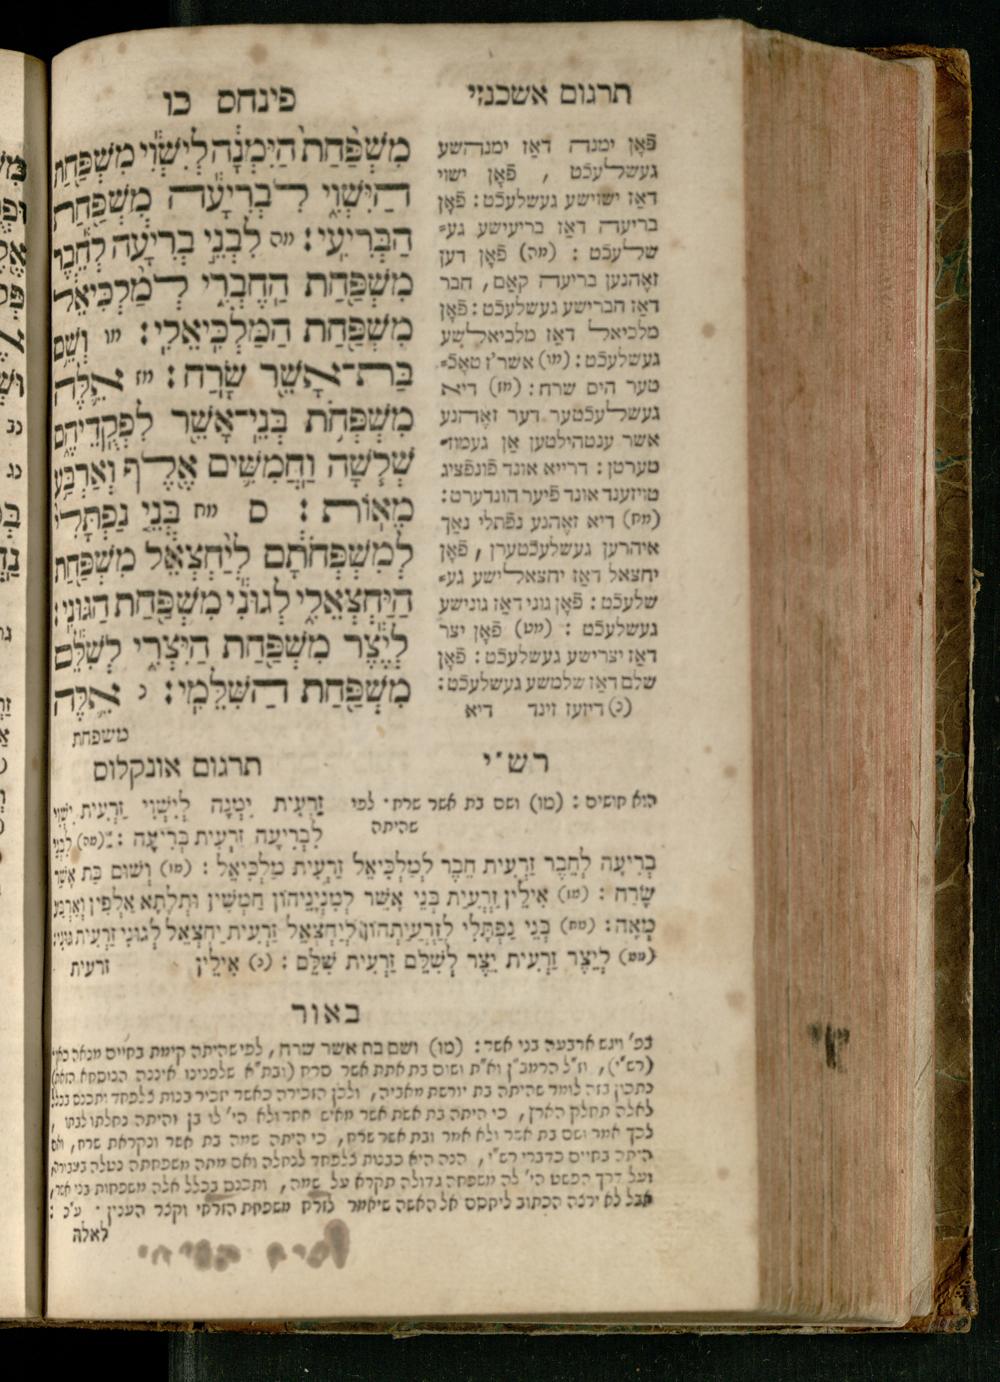 תרגום אשכנזי
פינחס כו
מִשְׁפַּחַת הַיִּמְנָה לְיִשְׁוִי מִשְׁפַּחַת
הַיִּשְׁוִי לִבְרִיעָה מִשְׁפַּחַת
הַבְּרִיעִי: מה לִבְנֵי בְרִיעָה לְחֵבֶר
מִשְׁפַּחַת הַחֶבְרִי לְמַלְכִּיאֵל
מִשְׁפַּחַת הַמַּלְכִּיאֵלִי: מו וְשֵׁם
בַּת־אָשֵׁר שָׂרַח: מז אֵלֶּה
מִשְׁפְּחֹת בְּנֵי־אָשֵׁר לִפְקֻדֵיהֶם
שְׁלֹשָׁה וַחֲמִשִּׁים אֶלֶף וְאַרְבַּע
מֵאוֹת: ס מח בְּנֵי נַפְתָּלִי
לְמִשְׁפְּחֹתָם לְיַחְצְאֵל מִשְׁפַּחַת
הַיַּחְצְאֵלִי לְגוּנִי מִשְׁפַּחַת הַגּוּנִי:
לְיֵצֶר מִשְׁפַּחַת הַיִּצְרִי לְשִׁלֵּם
מִשְׁפַּחַת הַשִּׁלֵּמִי: נ אֵלֶּה
משפחת
פֿאָן ימנה דאַז ימנהשע
געשלעכֿט , פֿאָן ישוי
דאַז ישוישע געשלעכֿט: פֿאָן
בריעה דאַז בריעישע גע־
שלעכֿט : (מה) פֿאָן דען
זאָהנען בריעה קאַם, חבר
דאַז חברישע געשלעכֿט: פֿאָן
מלכיאל דאַז מלכיאלישע
געשלעכֿט: (מו) אשר'ז טאָכֿ־
טער הים שרח: (מז) דיא
געשלעכֿטער דער זאָהנע
אשר ענטהילטען אַן געמוז־
טערטן: דרייא אונד פֿונפֿציג
טויזענד אונד פֿיער הונדערט:
(מח) דיא זאָהנע נפֿתלי נאָך
איהרען געשלעכֿטערן, פֿאָן
יחצאל דאַז יחצאלישע גע־
שלעכֿט: פֿאָן גוני דאַז גונישע
געשלעכֿט : (מט) פֿאָן יצר
דאַז יצרישע געשלעכֿט: פֿאָן
שלם דאַז שלמשע געשלעכֿט:
(נ) דיזעז זינד דיא
רש"י
הוא חושים: (מו) ושם בת אשר שרח. לפי
שהיתה
תרגום אונקלוס
זַרְעִית יִמְנָה לְיִשְׁוִי זַרְעִית יִשְׁוִי
לִבְרִיעָה זַרְעִית בְּרִיעָה: (מה) לִבְנֵי
בְרִיעָה לְחֵבֶר זַרְעִית חֵבֶר לְמַלְכִּיאֵל זַרְעִית מַלְכִּיאֵל: (מו) וְשׁוּם בַּת אָשֵׁר
שָׂרַח: (מז) אִילֵין זַרְעִית בְּנֵי אָשֵׁר לְמִנְיָנֵיהוֹן חַמְשִׁין וּתְלָתָא אַלְפִין וְאַרְבַּע
מְאָה: (מח) בְּנֵי נַפְתָּלִי לְזַרְעִיתְהוֹן לְיַחְצְאֵל זַרְעִית יַחְצְאֵל לְגוּנִי זַרְעִית גּוּנִי:
(מט) לְיֵצֶר זַרְעִית יֵצֶר לְשִׁלֵּם זַרְעִית שִׁלֵּם: (נ) אִילֵין
זרעית
באור
בפ' ויגש ארבעה בני אשר: (מו) ושם בת אשר שרח, לפי שהיתה קימת בחיים מנאה כאן
(רש"י), וז"ל הרמב"ן וא"ת ושום בת אתת אשר סרח (ובת"א שלפנינו איננה הנוסחא הזאת)
נתכון בזה לומר שהיתה בת יורשת מאביה, ולכן הזכירה כאשר יזכיר בנות צלפחד ותכנס בכלל
לאלה תחלק הארץ, כי היתה בת אשת אשר מאיש אחר ולא הי' לו בן והיתה נחלתו לבתו ,
לכך אמר ושם בת אשר ולא אמר ובת אשר שרח, כי היתה שמה בת אשר ונקראת שרח, ואם
היתה בחיים כדברי רש"י, הנה היא כבנות צלפחד לנחלה ואם מתה משפחתה נטלה בעבורה,
ועל דרך הפשט הי' לה משפחה גדולה תקרא על שמה, ותכנס בכלל אלה משפחות בני אשר,
אבל לא ירצה הכתוב ליחסם אל האשה שיאמר לשרח משפחת השרחי וקצר הענין. ע"כ :
לאלה